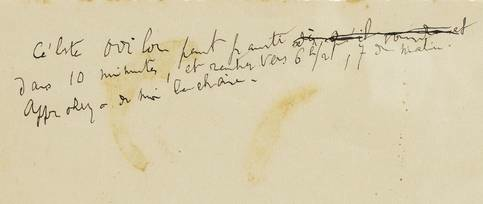 Céleste Odilon peut partir et
dans 10 minutes, et rentrer vers 6h 1/2, 7 du matin.
Approchez de moi la chaise.